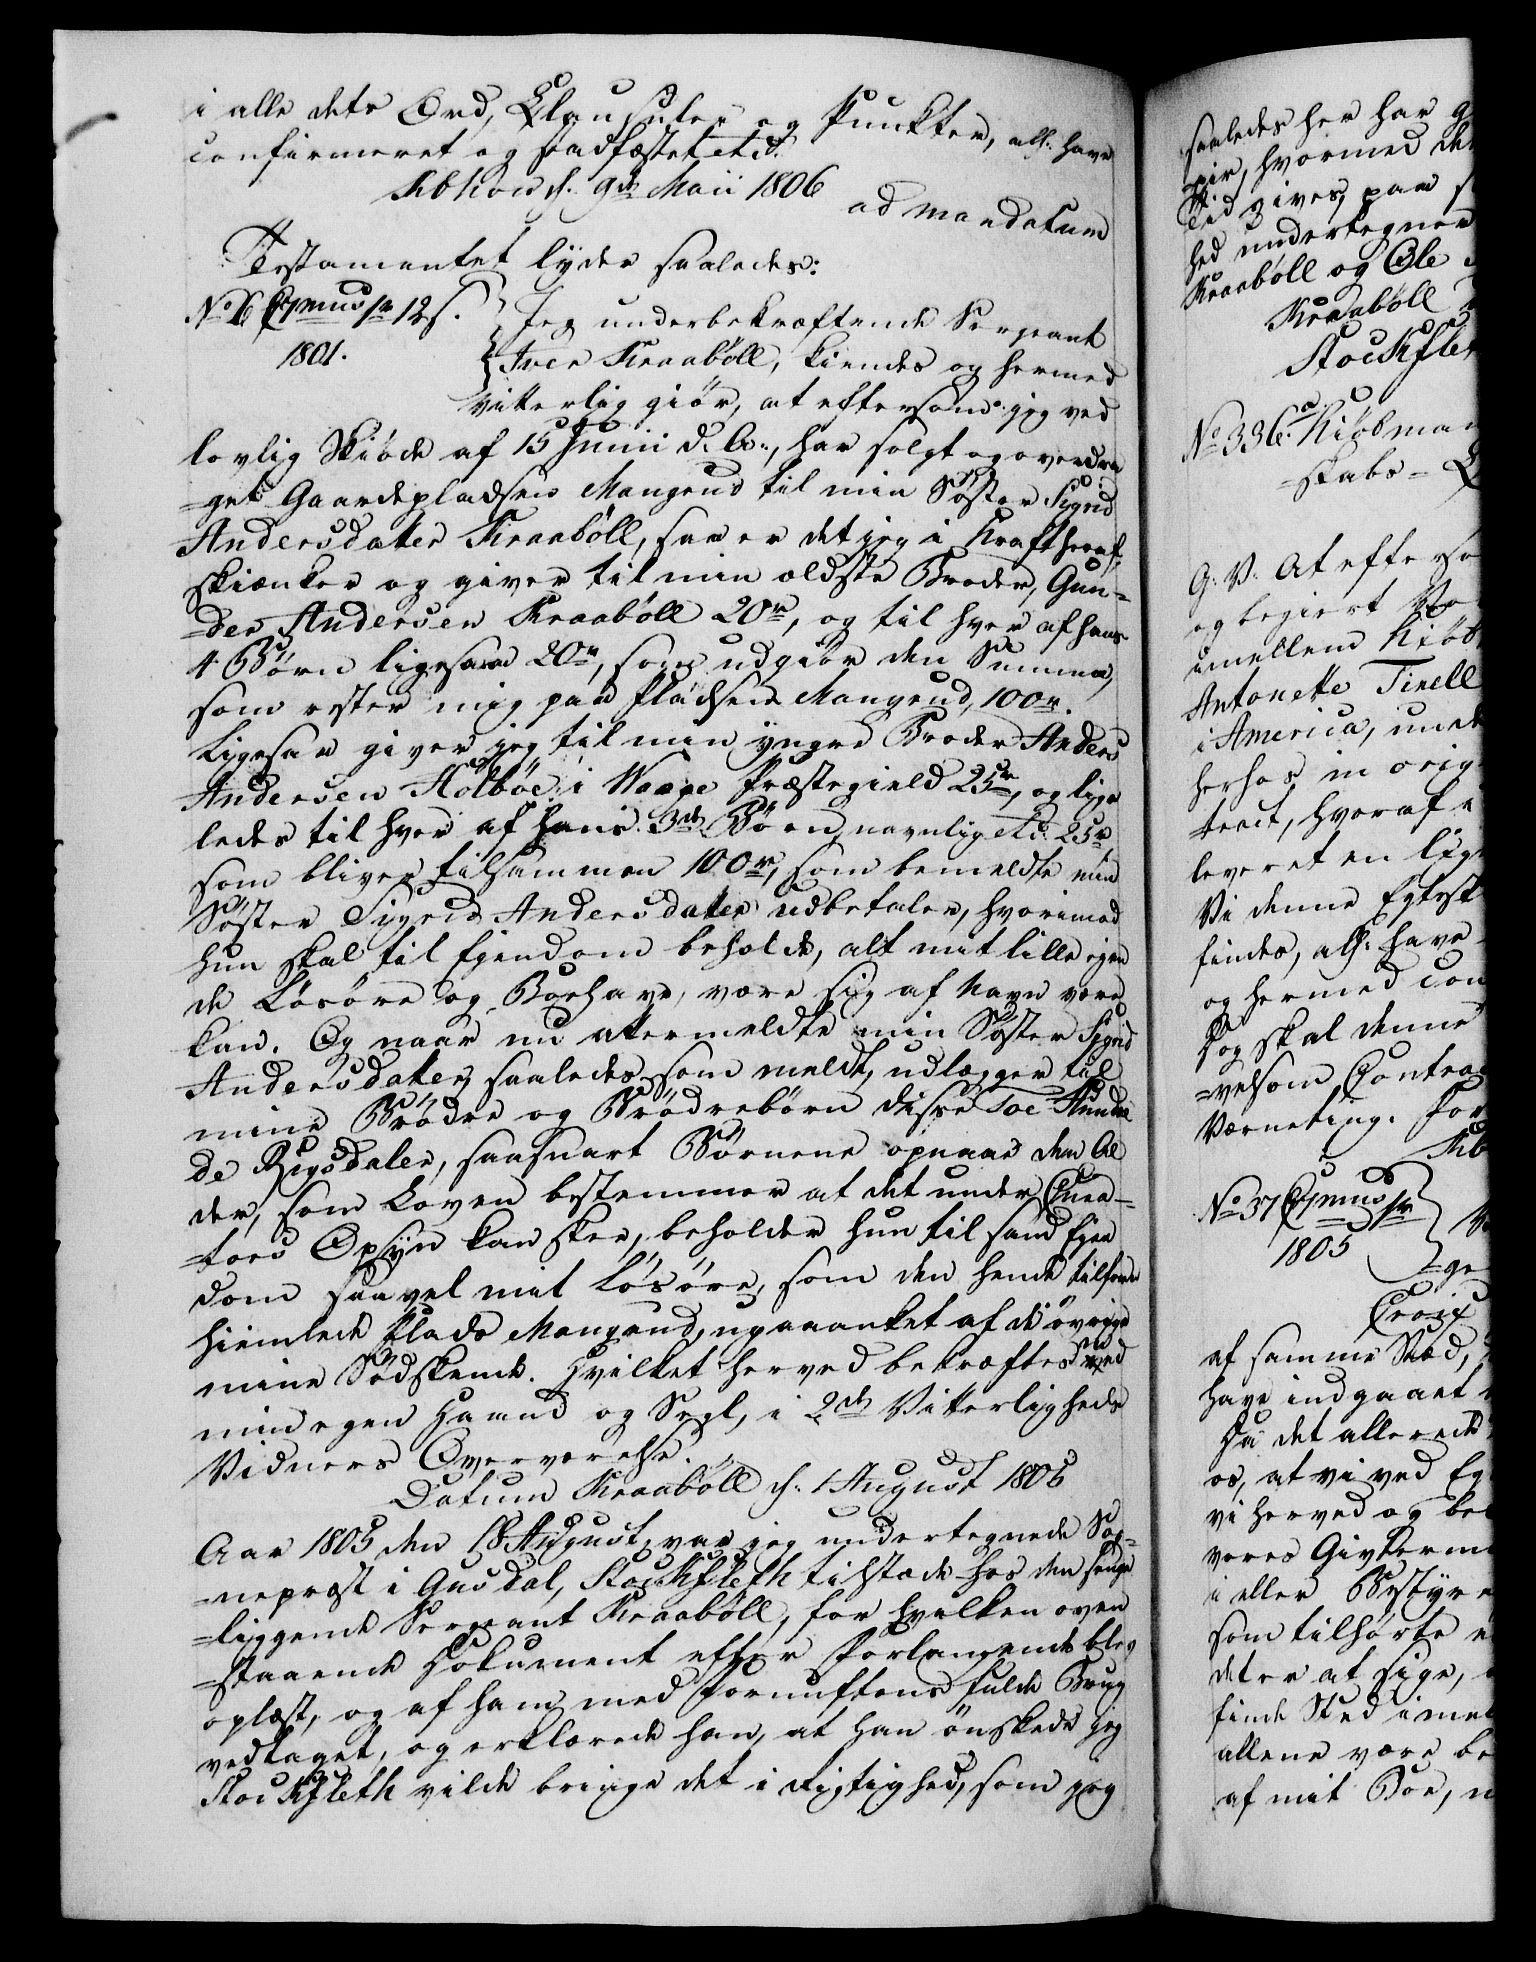 i alle dets Ord, Clausuler og Puncter, allr. have
confirmeret og stadfæstet etc.
Kbhavn d. 9de Maii 1806
ad mandatum
Testamentet lyder saaledes:
No 6 12 s.
1801.
Jeg underbekræftende Sergeant
Iver Kraabøll, kiendes og hermed
vitterlig giør, at eftersom jeg ved
lovlig Skiøde af 15 Junii d. A., har solgt og overdra
=get Gaardepladsen Mangrud til min Søster Sigrid
Andersdatter Kraabøll, saa er det jeg i Kraft heraf,
skiænker og giver til min ældste Broder, Gun=
=der Andersen Kraabøll 20 r, og til hver af hans
4 Børn ligesaa 20 r, som udgiør den Summa,
som rester mig paa Pladsen Mangrud, 100 r.
Ligesaa giver jeg til min yngre Broder Anders
Andersen Holbøe i Waage Præstegield 25 r, og lige
ledes til hver af hans 3de Børn, navnlig etc. 25 r
som bliver tilsammen 100 r, som bemeldte min
Søster Sigrid Andersdatter udbetaler, hvorimod
hun skal til Eiendom beholde, alt mit lille eien
de Løsøre og Boehave, være sig af Navn være
kan. Og naar nu attermeldte min Søster Sigrid
Andersdatter, saaledes som meldt, udlægger til
mine Brødre og Brødrebørn disse Toe Hundre
de Rigsdaler, saasnart Børnene opnaar den Al
der, som Loven bestemmer at det under Cura=
=tors Opsyn kan skee, beholder hun til sand Eien
dom saavel mit Løsøre, som den hende tilforn
hiemlede Plads Mangrud, upaaanket af de øvrige
mine Sødskende. Hvilket herved bekræftes med
min egen Haand og Segl, i 2de Vitterligheds
Vidners Overværelse.
Datum Kraabøll d. 1 August 1805
Aar 1805 den 18 August, var jeg undertegnede Sog=
=nepræst i Gusdal, Stockfleth tilstæde hos den senge
=liggende Sergeant Kraabøll, for hvilken oven
=staaende Dokument efter Forlangende blev
oplæst, og af ham med Fornuftens fulde Brug
vedtaget, og erklærede han, at han ønskede jeg
Stockfleth vilde bringe det i Rigtighed, som jeg
saaledes her har
hvormed det
Tid gives, paa
hed undertegner
Kraabøll og Ole
Kraabøll
Stockfleth
No 336. Kiøbman
=skabs=
G. V. At efterso
og begiert
imellem Kiøb
Antonette Tirell
i America, unde
herhos in orig
tract, hvoraf
leveret en lige
Vi denne Egtesk
findes, allr. have
og hermed con
Dog skal denne
=velsom Contra
Værneting. For
Kb
No 37
1805
=ge
Croix
af samme Stæd,
have indgaaet
Da det allerede
os, at vi ved Eg
vi herved og be
vores Givterm
i eller Bestyre
som tilhørte
det er at sige,
finde Sted imel
allene være be
af mit Boe,